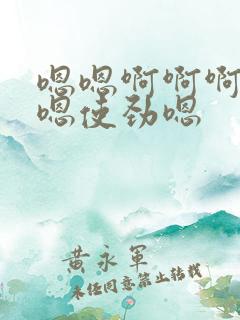 嗯嗯啊啊啊
嗯使劲嗯
黄永军
未经同意禁止转载